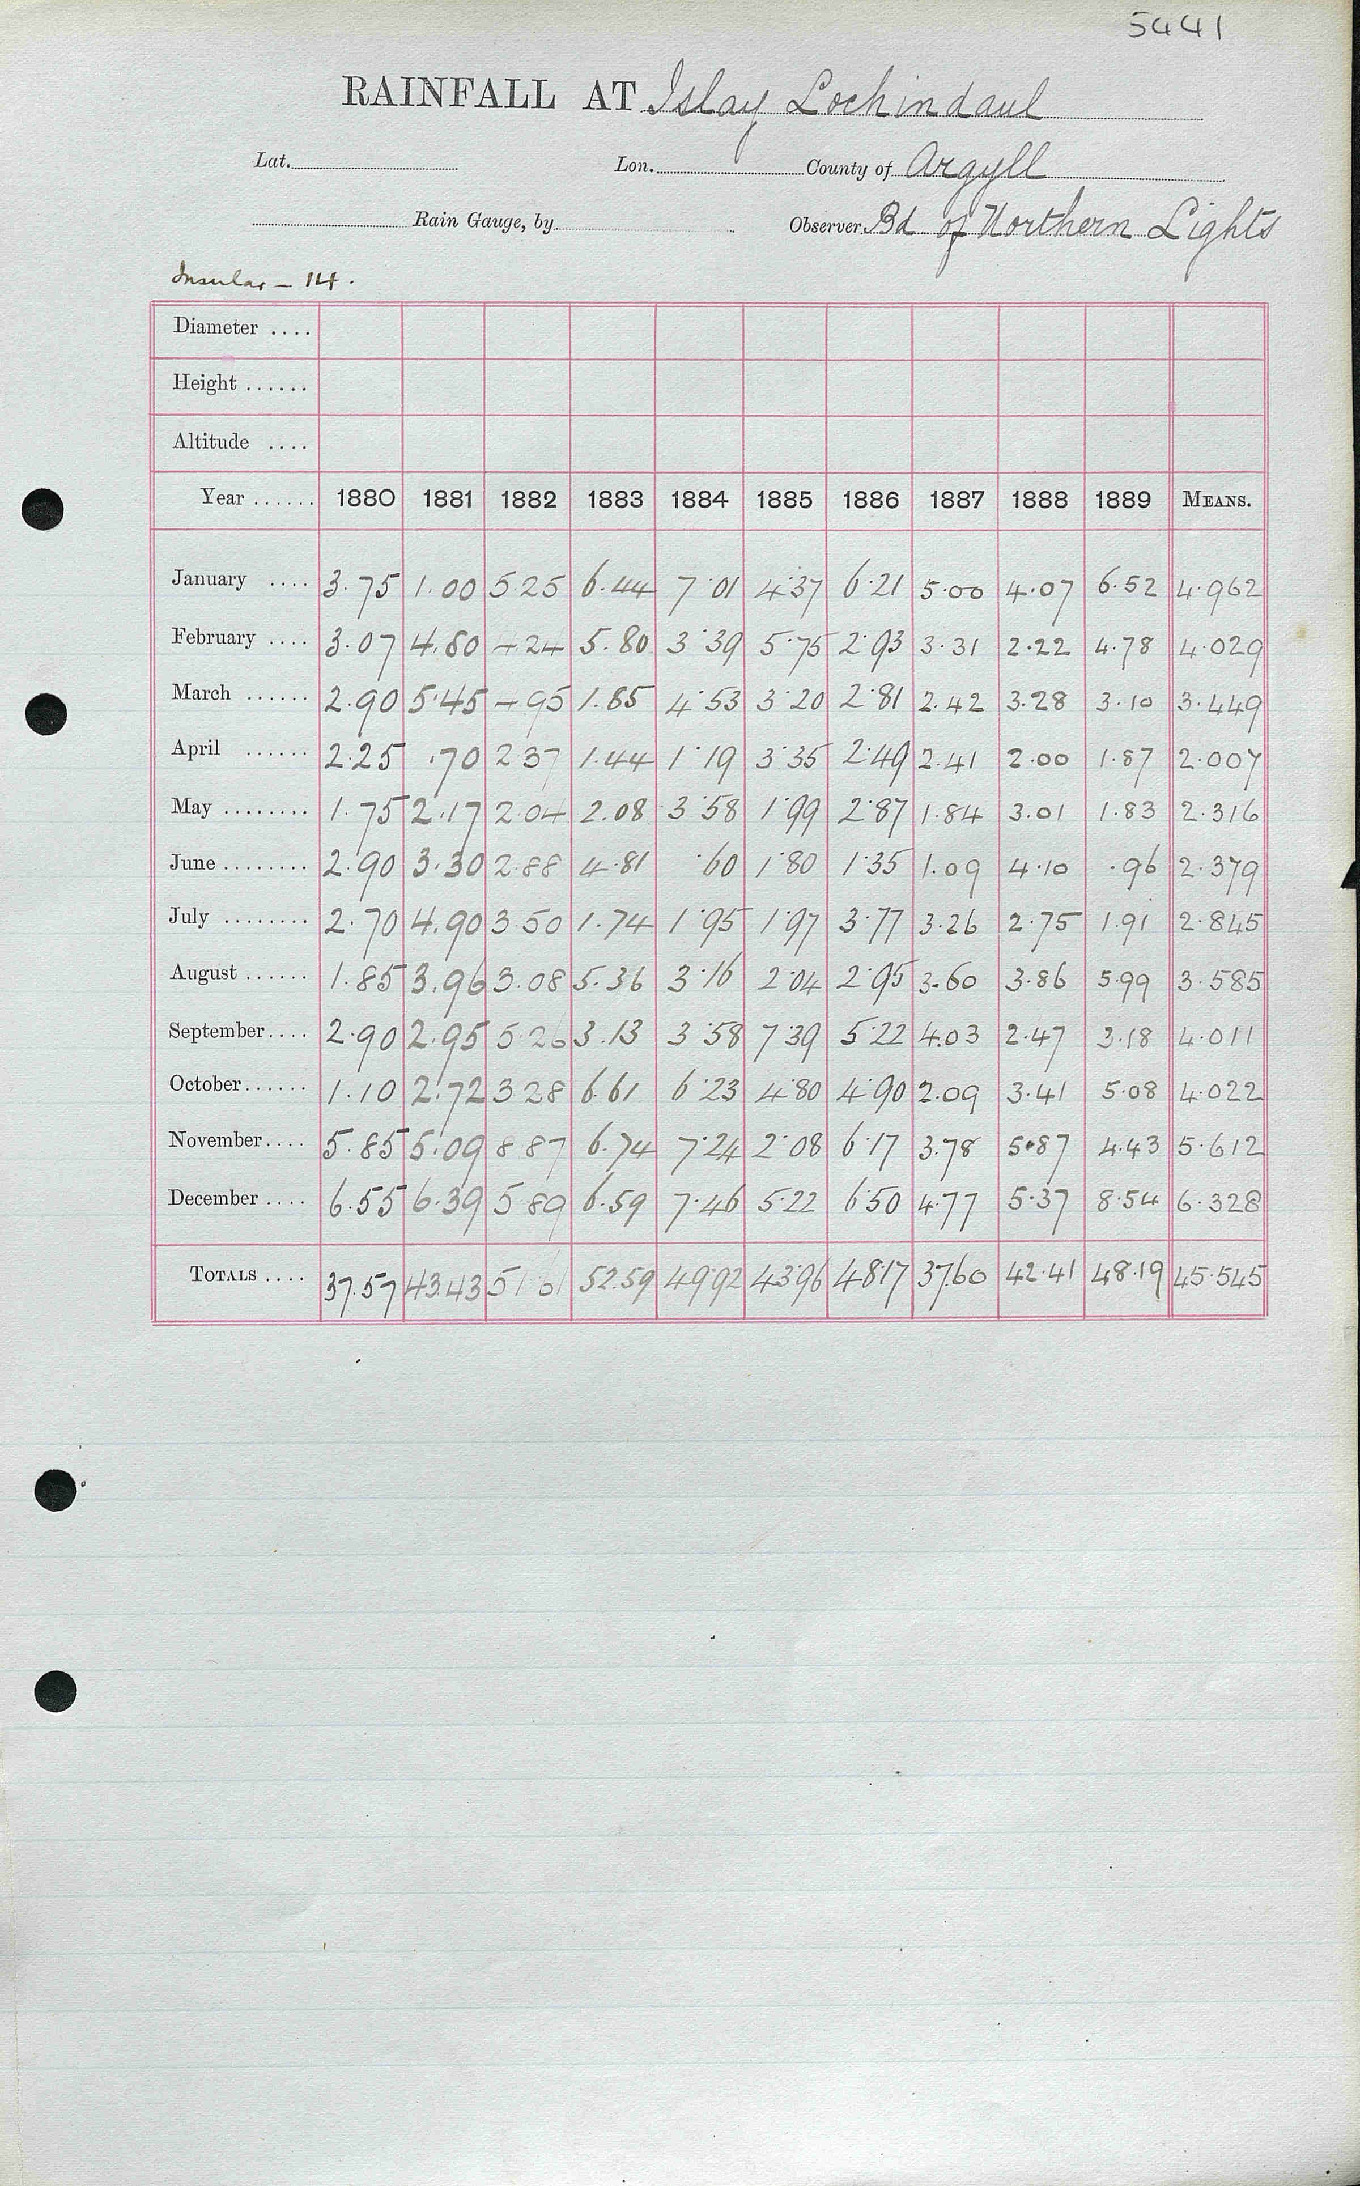 5441
RAINFALL AT Islay Lochindaul
Lat. Lon. County of Argyll
Rain Gauge, by Observer Bd of Northern Lights
Insular - 14.
Diameter ....
Height ......
Altitude ....
Year ...... 1880 1881 1882 1883 1884 1885 1886 1887 1888 1889 MEANS.
January .... 3.75 1.00 5.25 6.44 7.01 4.37 6.21 5.00 4.07 6.52 4.962
February .... 3.07 4.80 4.24 5.80 3.39 5.75 2.93 3.31 2.22 4.78 4.029
March ...... 2.90 5.45 4.95 1.85 4.53 3.20 2.81 2.42 3.28 3.10 3.449
April ...... 2.25 .70 2.37 1.44 1.19 3.35 2.49 2.41 2.00 1.87 2.007
May ........ 1.75 2.17 2.04 2.08 3.58 1.99 2.87 1.84 3.01 1.83 2.316
June ........ 2.90 3.30 2.88 4.81 .60 1.80 1.35 1.09 4.10 .96 2.379
July ........ 2.70 4.90 3.50 1.74 1.95 1.97 3.77 3.26 2.75 1.91 2.845
August ...... 1.85 3.96 3.08 5.36 3.16 2.04 2.95 3.60 3.86 5.99 3.585
September.... 2.90 2.95 5.26 3.13 3.58 7.39 5.22 4.03 2.47 3.18 4.011
October...... 1.10 2.72 3.28 6.61 6.23 4.80 4.90 2.09 3.41 5.08 4.022
November.... 5.85 5.09 8.87 6.74 7.24 2.08 6.17 3.78 5.87 4.43 5.612
December .... 6.55 6.39 5.89 6.59 7.46 5.22 6.50 4.77 5.37 8.54 6.328
TOTALS .... 37.57 43.43 51.61 52.59 49.92 43.96 48.17 37.60 42.41 48.19 45.545